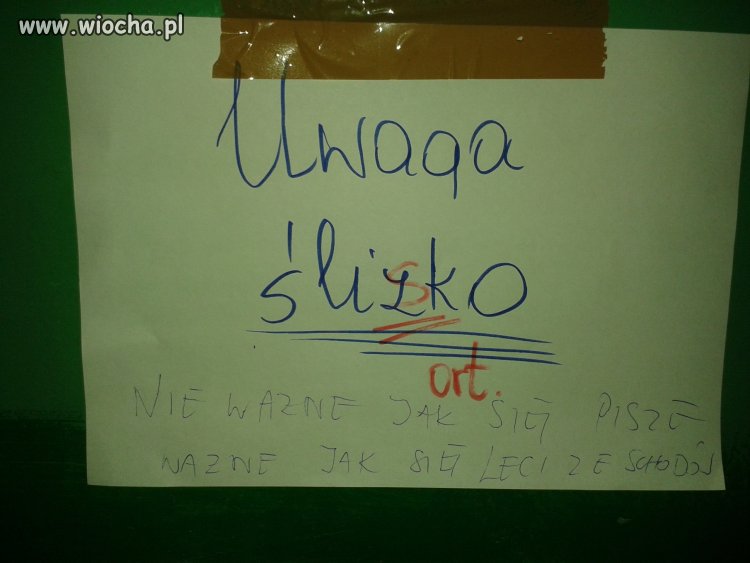 www.wiocha.pl
Uwaga
ślizko
s
ort.
NIE WAZNE JAK SIĘ PISZE
WAZNE JAK SIĘ LECI ZE SCHODÓW